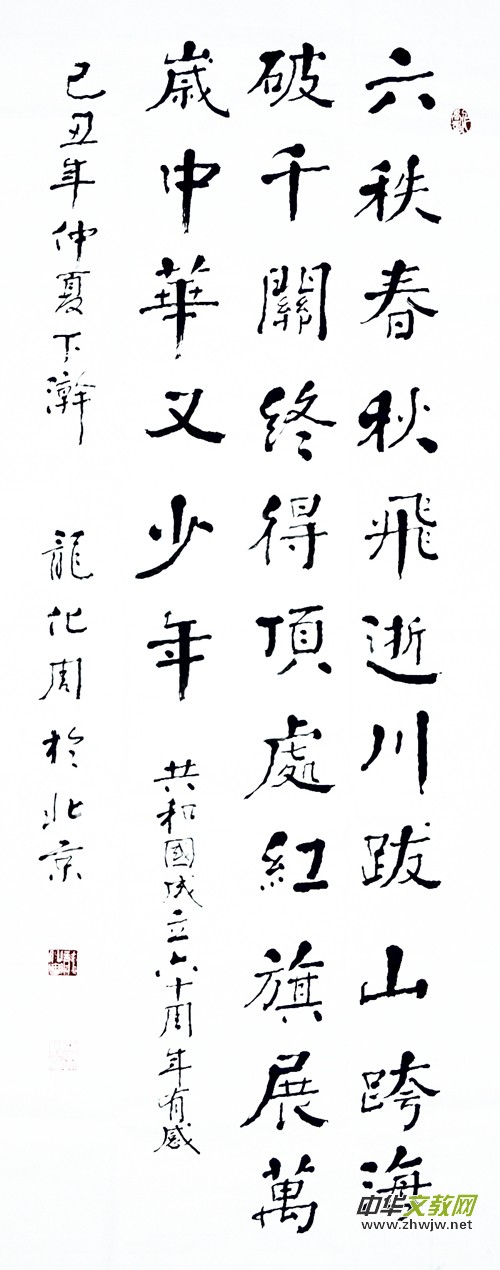 六秩春秋飛逝川跋山跨海
破千關終得頂處紅旗展萬
歲中華又少年
共和國成立六十周年有感
己丑年仲夏下澣
龍化周於北京
中华文教网
www.zhwjw.net